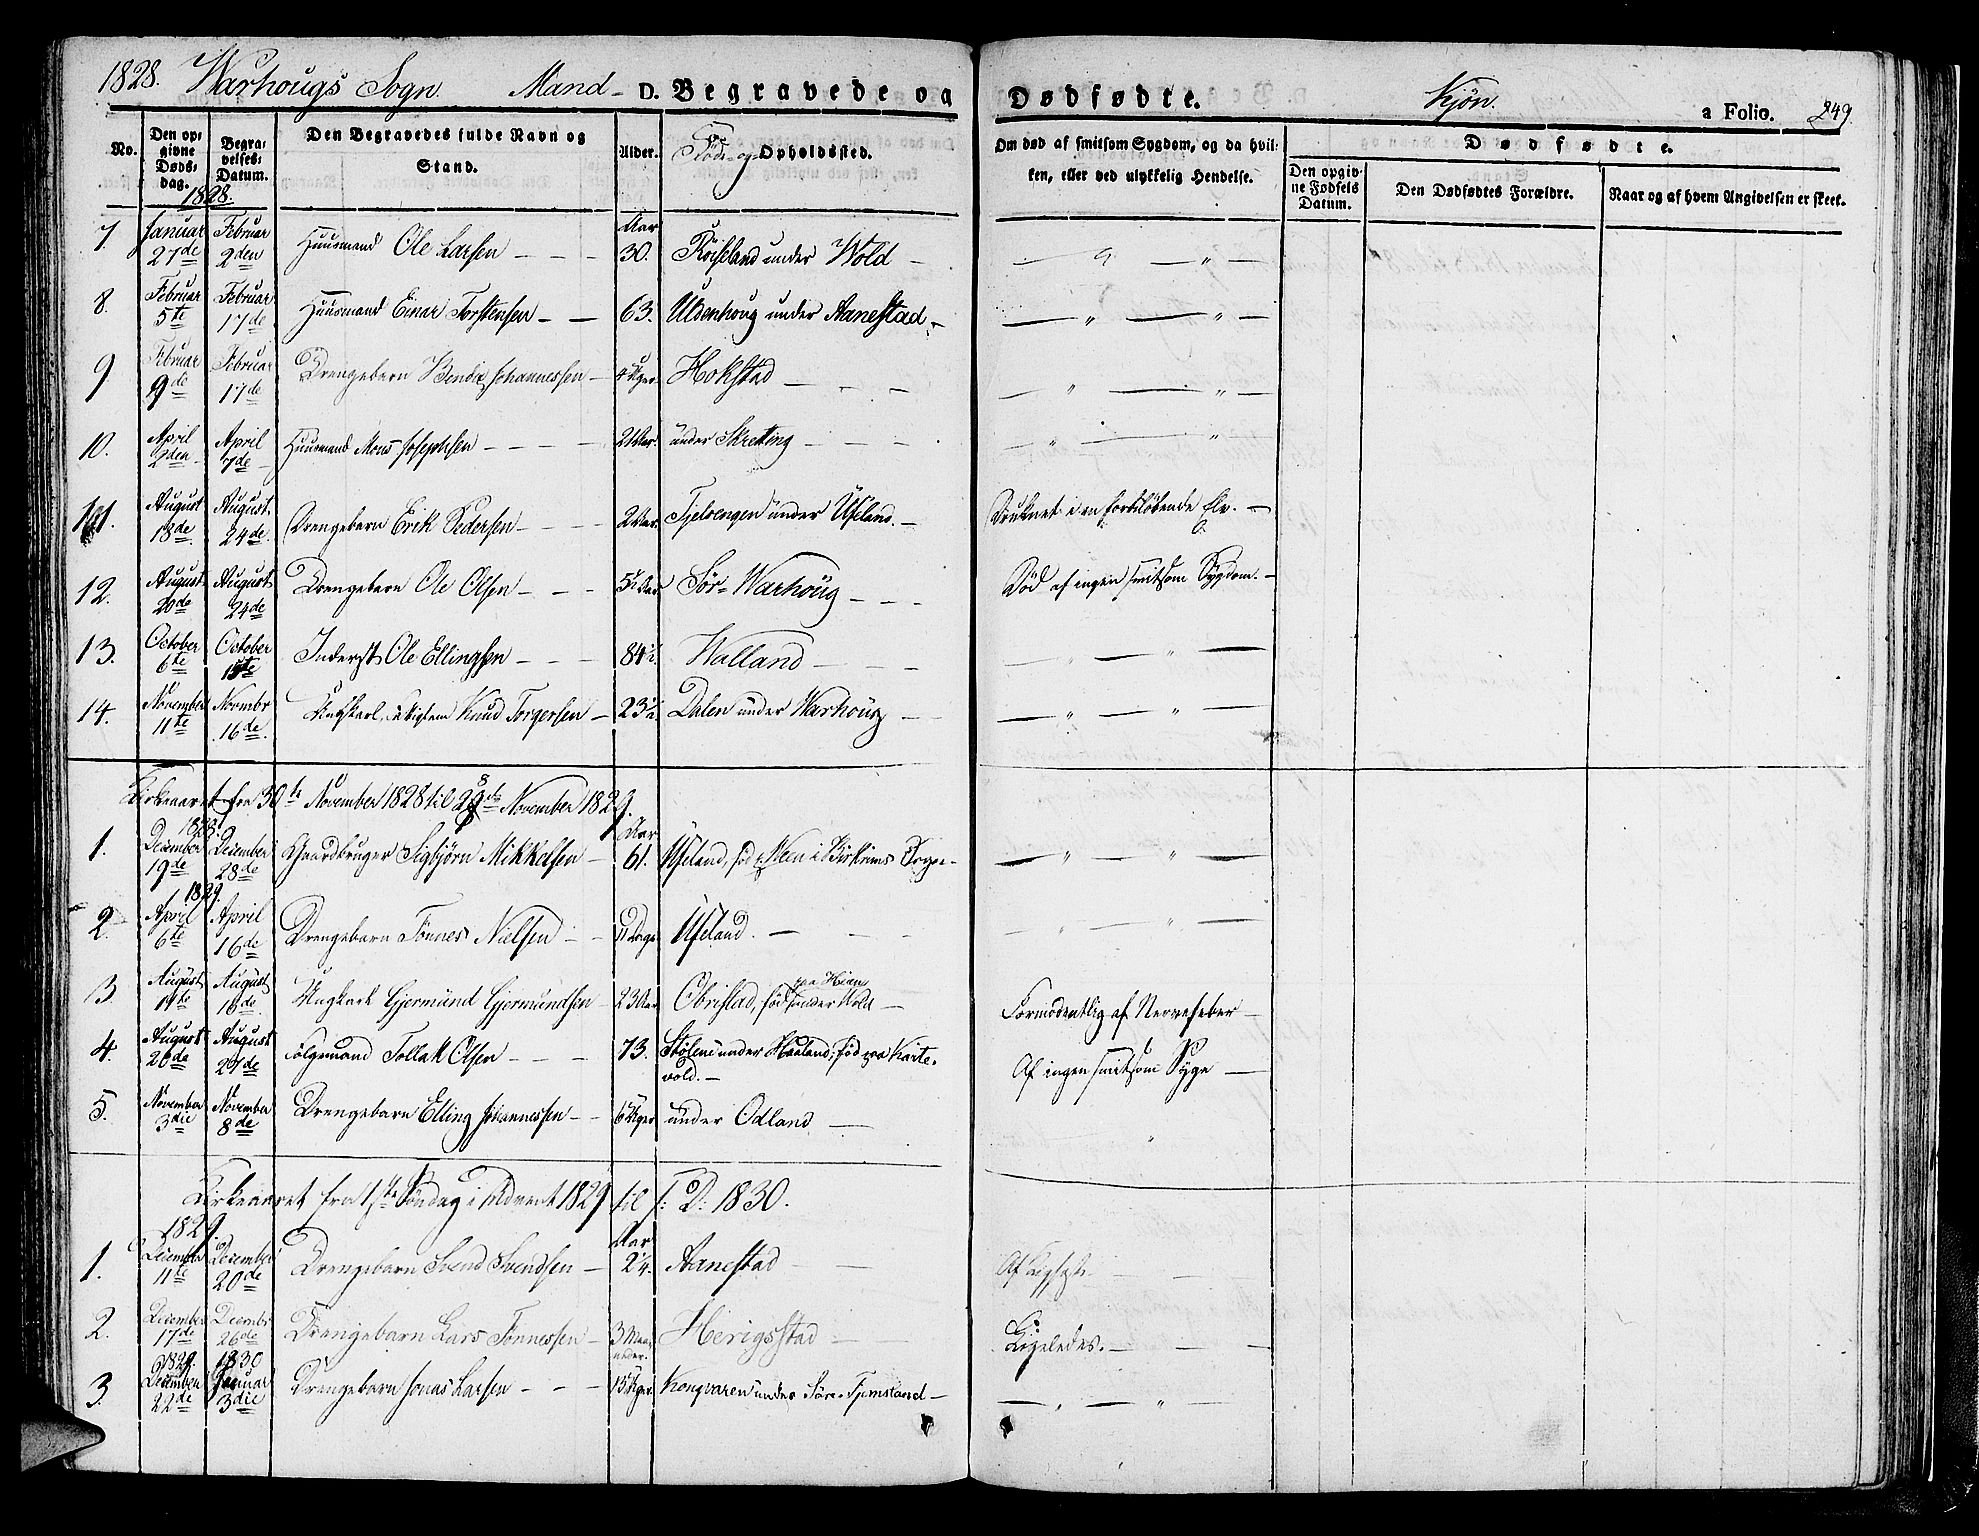 1828. Warhougs Sogn. Mand- D. Begravede og Dødfødte. Kjøn. a Folio. 249.
No. Den opgivne Dødsdag. Begravelses-Datum. Den Begravedes fulde Navn og Stand. Alder. Føde- og Opholdssted. Om død af smitsom Sygdom, og da hvilken, eller ved ulykkelig Hendelse. Dødfødte.
Den opgivne Fødsels Datum. Den Dødfødtes Forældre. Naar og af hvem Angivelsen er skeet.
1828.
7. Januar 27de Februar 2den Huusmand Ole Larsen - - - Aar 30. Røiseland under Wold - — " — " —
8. Februar 5te Februar 17de Huusmand Einar Torstensen - — 63. Uldenhoug under Aanestad - — " — " —
9 Februar 9de Februar 17de Drengebarn Bendix Johannessen - 4 Uger Hokstad - - - — " — " —
10. April 2den April 7de Huusmand Mons Josephsen - - - - Aar. under Skretting - - - — " — "
11. August 18de August 24de Drengebarn Erik Pedersen - - - 2 Aar. Tjelsengen under Ueland. - Druknet i en forbiløbende Elv. —
12. August 20de August 24de Drengebarn Ole Olsen - - - 5½ Aar Sør-Warhoug - - - Død af ingen smitsom Sygdom. -
13. October 6te October Inderst Ole Ellingsen - - - 84½. Walland - - - — " — " —
14. November 11te Novembr 16de. Ungkarl, Knud Torgersen - 23½ Dalen under Warhoug - - — " — " —
Kirkeaaret fra 30te November 1828 til 28de November 1829.
1828. Aar
1. December 19de December 28de Gaardbruger Sigbjørn Mikkelsen - 61. Ueland, fød i Birkrims Sogn- — " — " —
1829.
2. April 6te April 16de Drengebarn Tønnes Nielsen - - 11 Dage Ueland. - - - — " — " —
3 August 11te August 16de. Ungkarl Gjermund Gjermundsen - 23 Aar Obrestad, fød paa under Wold - Formodentlig af Nervefeber -
4. August 26de August Følgemand Tollak Olsen - - - 73. Stølene under Haaland, fød paa Karte-
vold. - Af ingen smitsom Syge —
5. November 3die November 8de Drengebarn Elling Johannessen - - 6 Uger under Odland — "
Kirkeaaret fra 1ste Søndag i Advent 1829 til s: D: 1830.
1829. Aar
1. December 11te December 20de Drengebarn Svend Svendsen - 2¼. Aanestad - - Af - - -
2. December 17de Decembr 26de Drengebarn Lars Tønnessen - 3 Maaneder. Herigsstad - Ligeledes. - - -
1829. 1830
3. December 22de Januar 3die Drengebarn Jonas Larsen - - - 15 Uger Kongvaren under Søre-Tjemsland - — " — " —